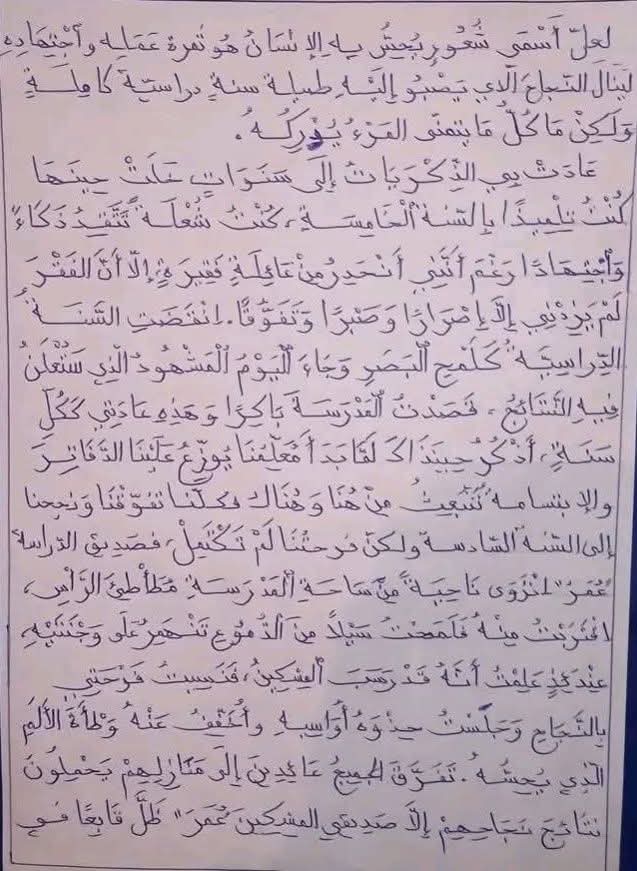 لعلّ أَسْمَى شُعُورٍ يُحِسُّ بِهِ الإِنْسَانُ هُوَ ثمرة عَمَلِهِ وَاجْتِهَادِهِ
لينَالَ النَّجَاحَ الَّذِي يَصْبُو إِلَيْهِ طيلة سنةٍ دراسيّة كَامِلَةٍ
وَلَكِنْ مَا كُلُّ مَا يتمنى المَرْءُ يُدْرِكُهُ.
عَادَتْ بِي الذِّكْرَيَاتُ إِلَى سَنَوَاتٍ خَلَتْ حِينَهَا
كُنْتُ تِلْمِيذًا بِالسّنةِ الْخَامِسَةِ، كُنْتُ شُعْلَةً تَتَّقِدُ ذَكَاءً
وَاجْتِهَادًا رَغْمَ أَنَّنِي أَنْحَدِرُ مِنْ عَائِلَةٍ فَقِيرَةٍ، إِلَّا أَنَّ الفَقْرَ
لَمْ يَزِدْنِي إِلَّا إِصْرَارًا وَصَبْرًا وَتَفَوُّقًا. اِنْقَضَتِ السَّنَةُ
الدِّرَاسِيَّةُ كَلَمْحِ الْبَصَرِ وَجَاءَ الْيَوْمُ الْمَشْهُودُ الَّذِي سَتُعْلَنُ
فِيهِ النَّتَائِجُ، قَصَدْتُ الْمَدْرَسَةَ بَاكِرًا وَهَذِهِ عَادَتِي كَكُلِّ
سَنَةٍ، أَذْكُرُ حِينَذَاكَ لَقَدْ بَدَأَ مُعَلِّمُنَا يُوَزِّعُ عَلَيْنَا الدَّفَاتِرَ
والابتسامة تَنْبَعِثُ مِنْ هُنَا وَهُنَاكَ فكلّنا تفوّقْنَا ونجحنا
إلى السّنةِ السّادسة ولكنّ فرحتُنَا لَمْ تَكْتَمِلْ، فصديق الدّراسة
"عُمَرُ" انْزَوَى نَاحِيَةً مِنْ سَاحَةِ الْمَدْرَسَةِ مُطَأْطِئَ الرَّأْسِ،
اقْتَرَبْتُ مِنْهُ فَلَمَحْتُ سَيْلًا مِنَ الدُّمُوعِ تَنْهَمِرُ عَلَى وَجْنَتَيْهِ،
عِنْدَئِذٍ عَلِمْتُ أَنَّهُ قَدْ رَسَبَ الْمِسْكِينُ، فَنَسِيتُ فَرْحَتِي
بِالنَّجَاحِ وَجَلَسْتُ حِذْوَهُ أُوَاسِيهِ وأُخَفِّفُ عَنْهُ وَطْأَةَ الأَلَمِ
الَّذِي يُحِسُّهُ. تَفَرَّقَ الجميعُ عَائِدِينَ إِلَى مَنَازِلِهِمْ يَحْمِلُونَ
نتَائِجَ نَجَاحِهِمْ إِلَّا صَدِيقِي المِسْكِينَ عُمَرَ" ظَلَّ قَابِعًا فِي